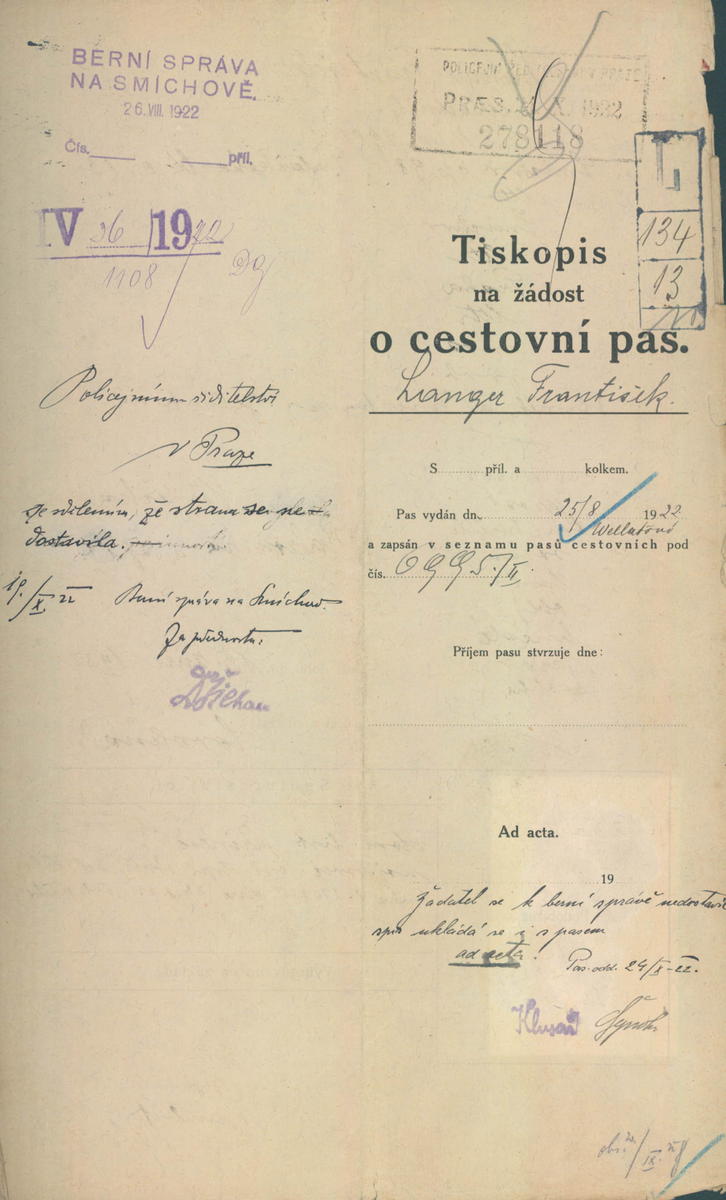 BERNÍ SPRÁVA
NA SMÍCHOVĚ.
26.VIII.1922
Čís. příl.
IV 36 1922
1108
Policejnímu ředitelství
v Praze
se sdělením, že strana se ne-
dostavila.
19/X 22 Berní správa na Smíchově.
Za přednostu:
POLICEJNÍ ŘEDITELSTVÍ V PRAZE
PRÆS. X. 1922
278118
L
134
13
Tiskopis
na žádost
o cestovní pas.
Langer František.
S příl. a kolkem.
Pas vydán dne 25/8 1922
a zapsán v seznamu pasů cestovních pod
čís. 0995/II.
Příjem pasu stvrzuje dne:
Ad acta.
19
Žadatel se k berní správě nedostavil
spis ukládá se i s pasem
ad acta. Pas. odd. 24/X-22.